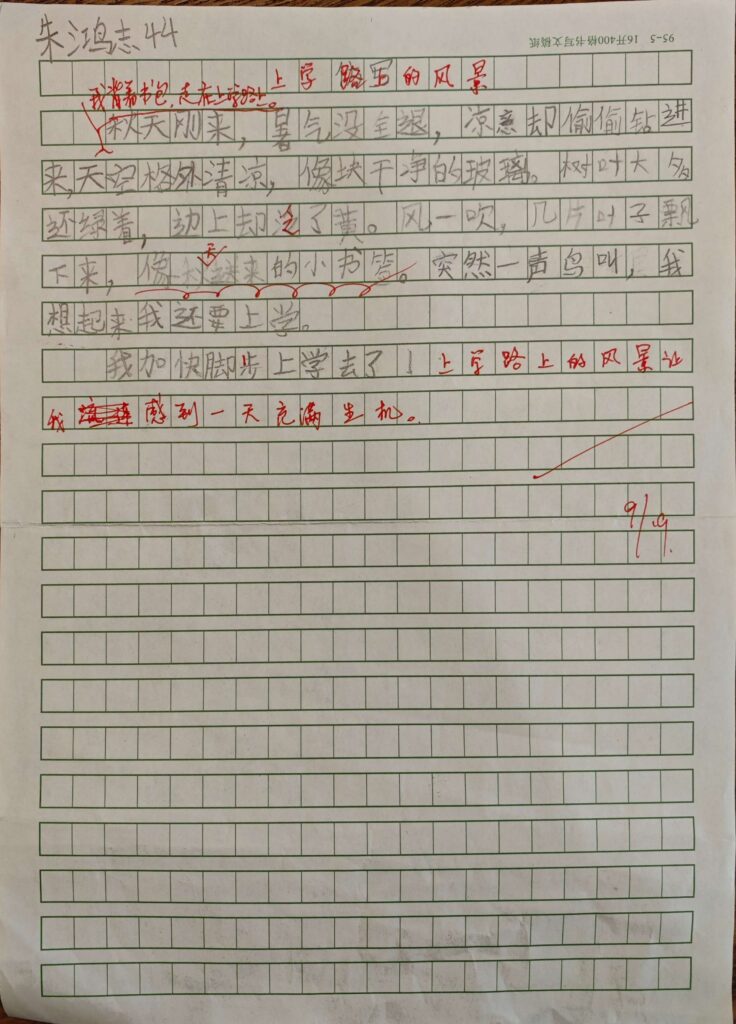 朱鸿志44
95-5 16开400格书写文稿纸
上学路上的风景
我背着书包,走在上学路上。
秋天刚来,暑气没全退,凉意却偷偷钻进
来,天空格外清凉,像块干净的玻璃。树叶大多
还绿着,边上却泛了黄。风一吹,几片叶子飘
下来,像秋天送来的小书签。突然一声鸟叫,我
想起来我还要上学。
我加快脚步上学去了!上学路上的风景让
我感到一天充满生机。
9/19.